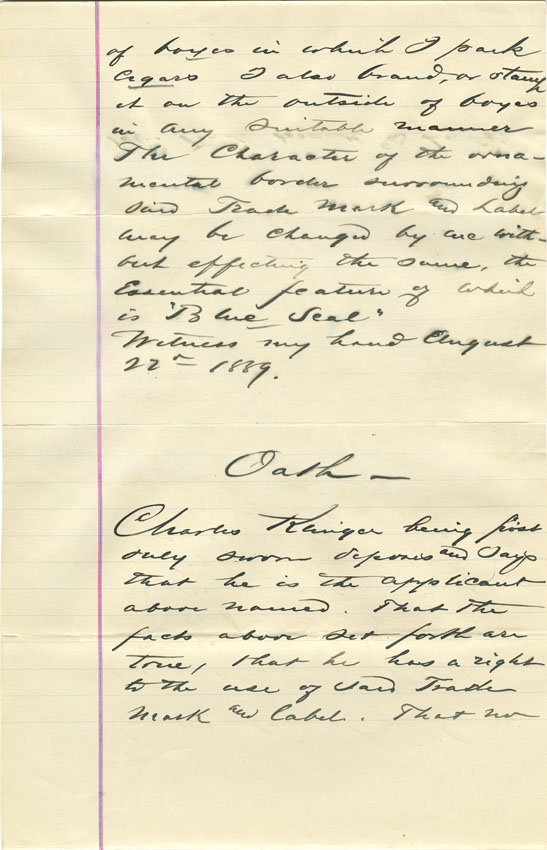 of boxes in which I pack
cigars I also brand, or stamp
it on the outside of boxes
in any suitable manner
The Character of the orna-
mental border surrounding
said Trade Mark and Label
may be changed by me with-
out effecting the same, the
Essential feature of which
is "Blue Seal"
Witness my hand August
22nd 1889.
Oath —
Charles Klinger being first
duly sworn deposes and Says
that he is the applicant
above named. That the
facts above set forth are
true, that he has a right
to the use of said Trade
Mark and label. That no